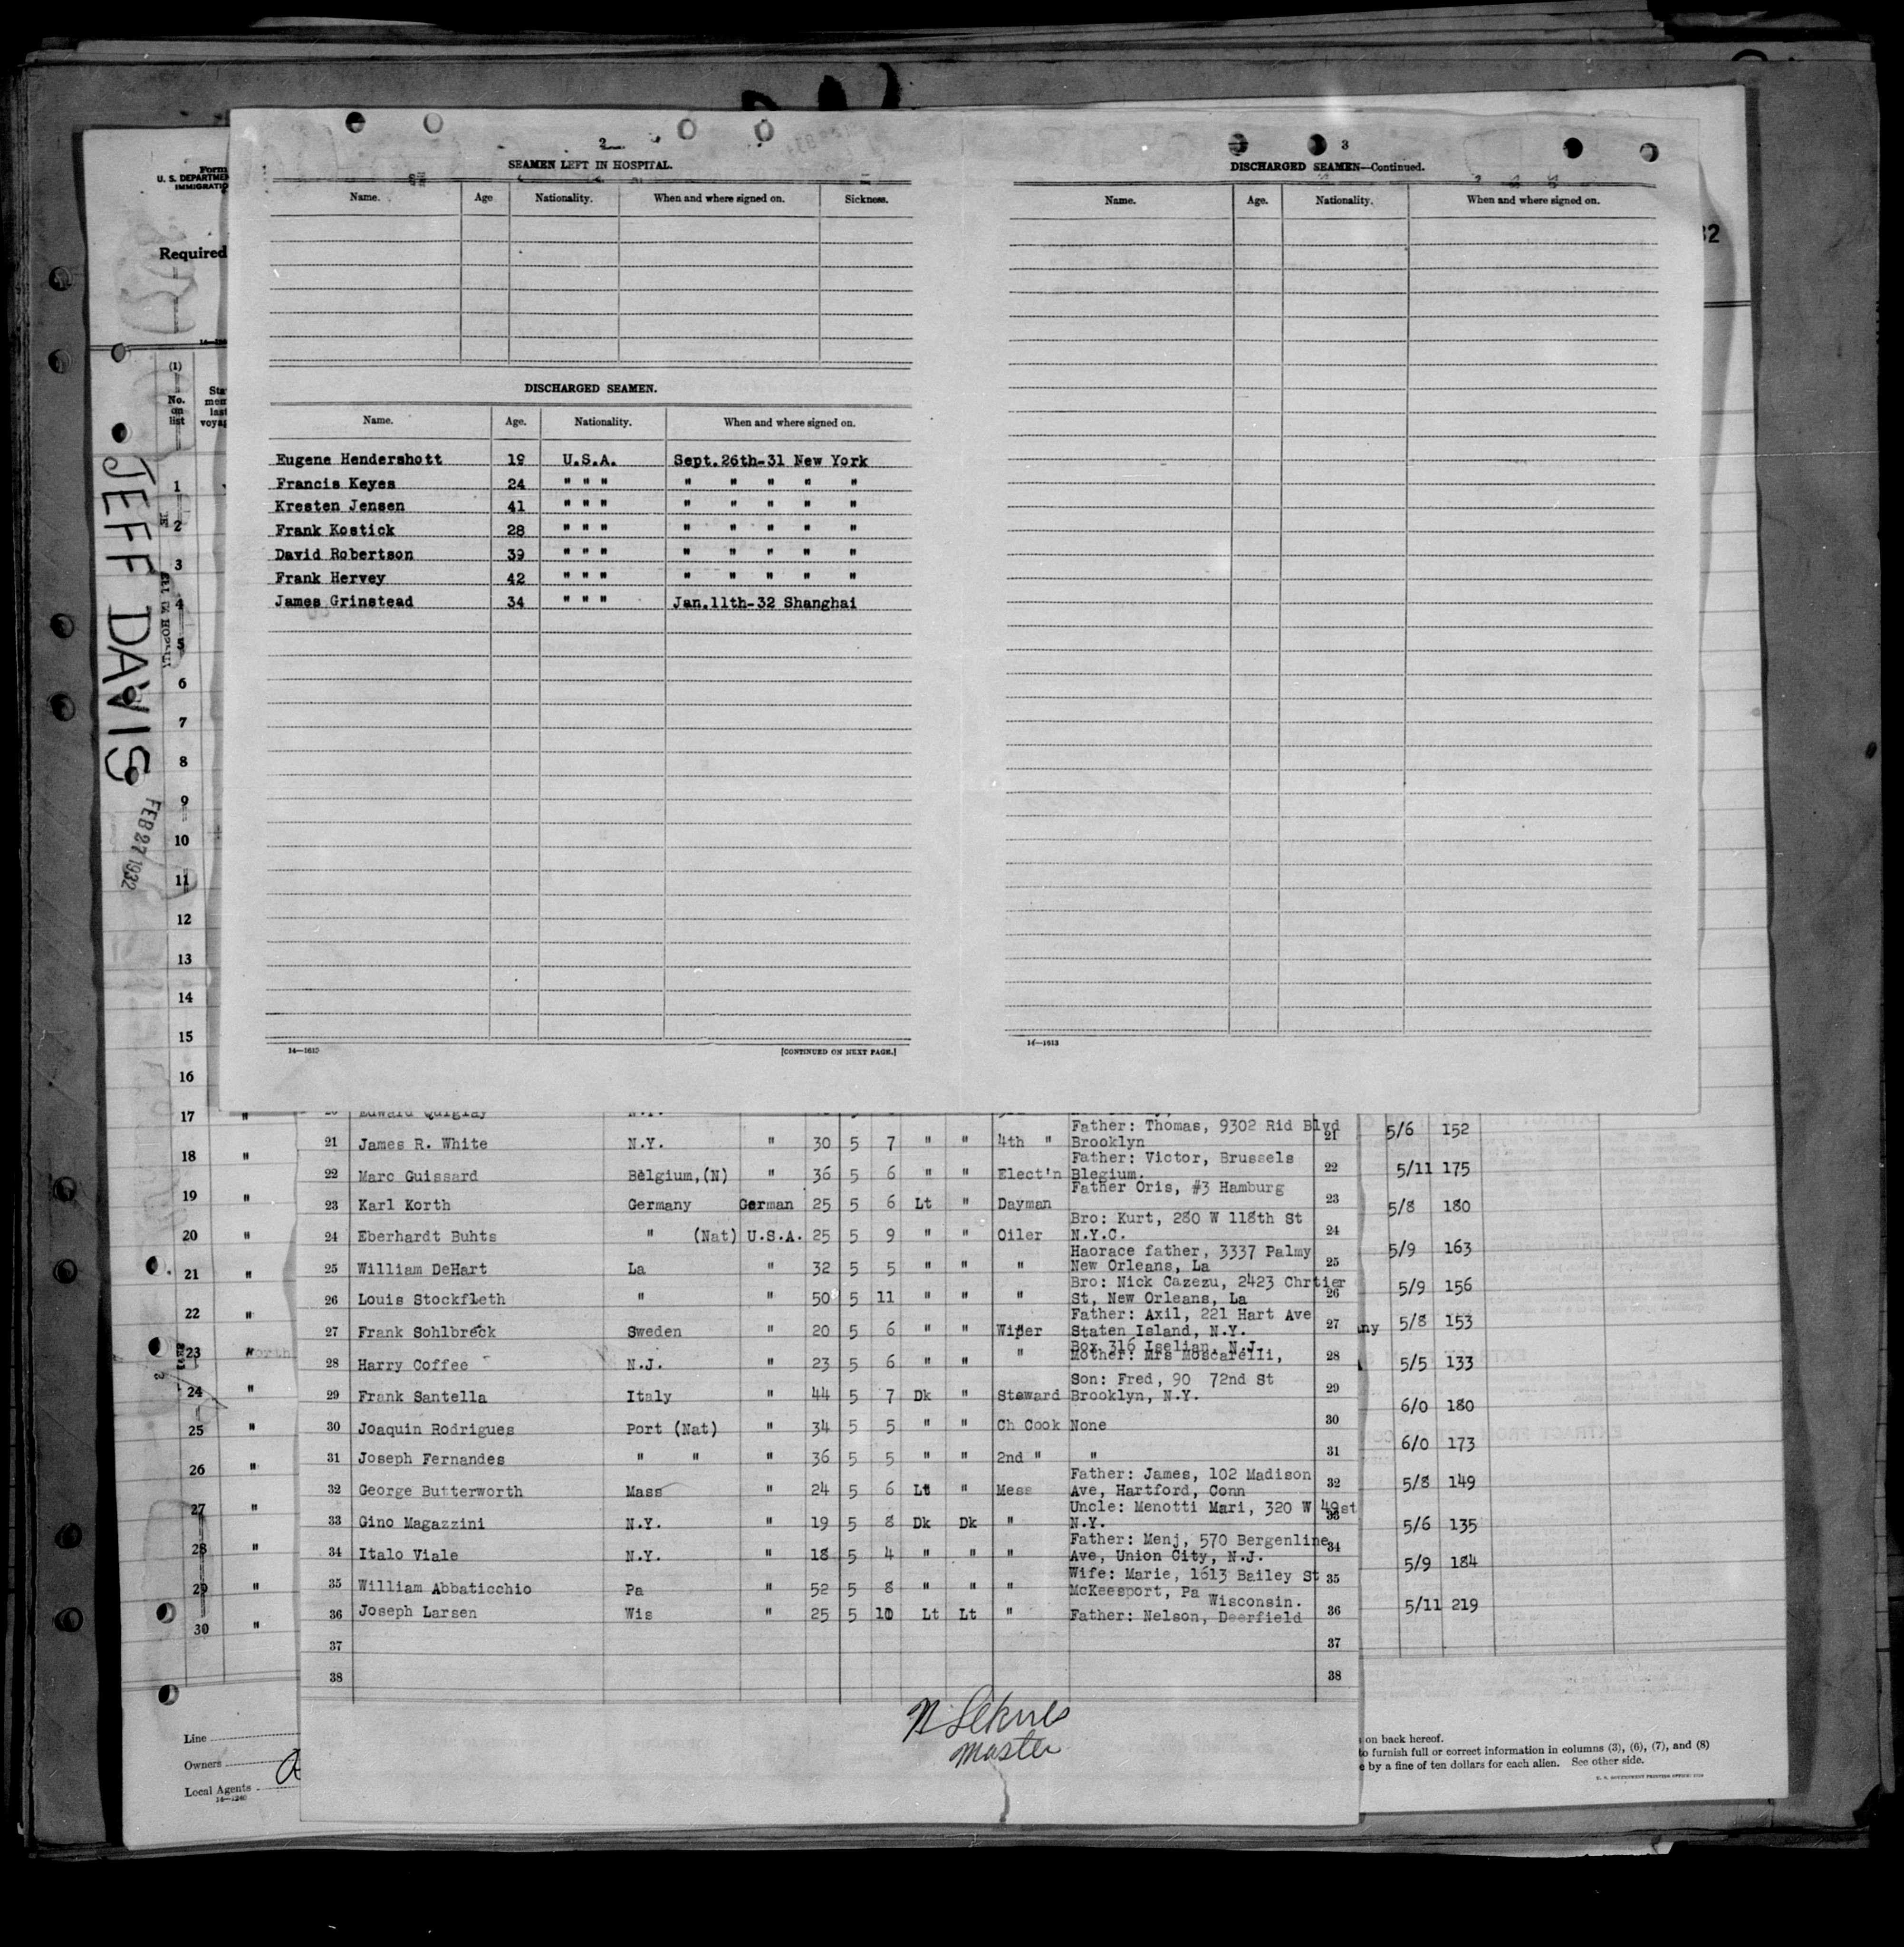 2
SEAMEN LEFT IN HOSPITAL.
Name. Age Nationality. When and where signed on. Sickness.
DISCHARGED SEAMEN.
Name. Age. Nationality. When and where signed on.
Eugene Hendershott 19 U.S.A. Sept.26th-31 New York
Francis Keyes 24 " " " " " " " "
Kresten Jensen 41 " " " " " " " "
Frank Kostick 28 " " " " " " " "
David Robertson 39 " " " " " " " "
Frank Hervey 42 " " " " " " " "
James Grinstead 34 " " " Jan.11th-32 Shanghai
14—1613 [CONTINUED ON NEXT PAGE.]
3
DISCHARGED SEAMEN—Continued.
Name. Age. Nationality. When and where signed on.
14—1613
Form
U. S. DEPARTME
IMMIGRATIO
Required
32
(1)
No. on list
Sta
men
last
voyag
JEFF DAVIS
FEB 27 1932
1
2
3
4
5
6
7
8
9
10
11
12
13
14
15
16
17 "
18 "
19 "
20 "
21 "
22 "
23 "
24 "
25 "
26 "
27 "
28 "
29 "
30 "
Edward Quiglay N.Y.
Father: Thomas, 9302 Rid Blvd
21 James R. White N.Y. " 30 5 7 " " 4th " Brooklyn 21
Father: Victor, Brussels
22 Marc Guissard Belgium,(N) " 36 5 6 " " Elect'n Blegium. 22
Father Oris, #3 Hamburg
23 Karl Korth Germany German 25 5 6 Lt " Dayman 23
Bro: Kurt, 280 W 118th St
24 Eberhardt Buhts " (Nat) U.S.A. 25 5 9 " " Oiler N.Y.C. 24
Haorace father, 3337 Palmy
25 William DeHart La " 32 5 5 " " " New Orleans, La 25
Bro: Nick Cazezu, 2423 Chrtier
26 Louis Stockfleth " " 50 5 11 " " " St, New Orleans, La 26
Father: Axil, 221 Hart Ave
27 Frank Sohlbreck Sweden " 20 5 6 " " Wiper Staten Island, N.Y. 27
Box 316 Iselian, N.J.
28 Harry Coffee N.J. " 23 5 6 " " " Mother: Mrs Moscarelli, 28
Son: Fred, 90 72nd St
29 Frank Santella Italy " 44 5 7 Dk " Steward Brooklyn, N.Y. 29
30 Joaquin Rodrigues Port (Nat) " 34 5 5 " " Ch Cook None 30
31 Joseph Fernandes " " " 36 5 5 " " 2nd " " 31
Father: James, 102 Madison
32 George Butterworth Mass " 24 5 6 Lt " Mess Ave, Hartford, Conn 32
Uncle: Menotti Mari, 320 W 49st
33 Gino Magazzini N.Y. " 19 5 8 Dk Dk " N.Y. 33
Father: Menj, 570 Bergenline
34 Italo Viale N.Y. " 18 5 4 " " " Ave, Union City, N.J. 34
Wife: Marie, 1613 Bailey St
35 William Abbaticchio Pa " 52 5 8 " " " McKeesport, Pa 35
Wisconsin.
36 Joseph Larsen Wis " 25 5 10 Lt Lt " Father: Nelson, Deerfield 36
37 37
38 38
5/6 152
5/11 175
5/8 180
5/9 163
5/9 156
ny 5/8 153
5/5 133
6/0 180
6/0 173
5/8 149
5/6 135
5/9 184
5/11 219
Master
Line
Owners
Local Agents
14—1240
on back hereof.
to furnish full or correct information in columns (3), (6), (7), and (8)
e by a fine of ten dollars for each alien. See other side.